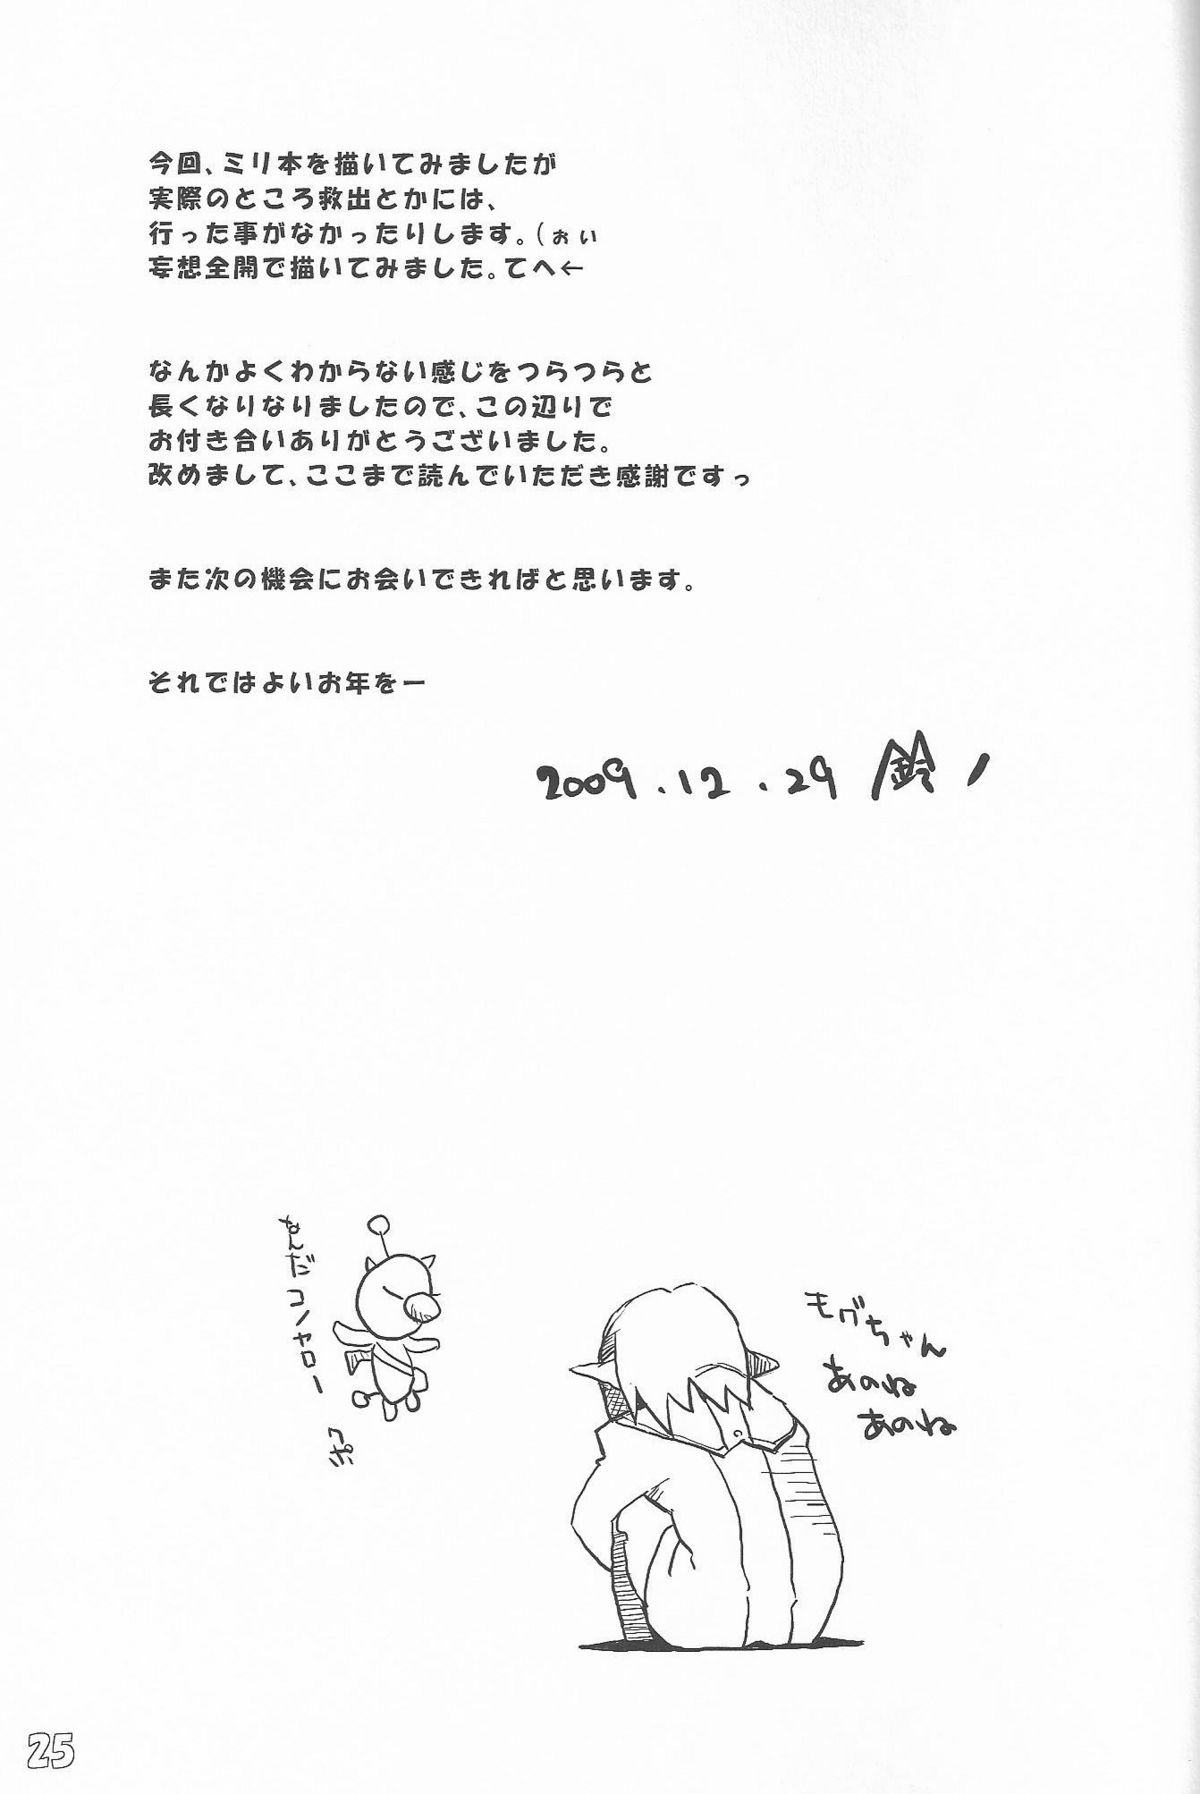 今回、ミリ本を描いてみましたが
実際のところ救出とかには、
行った事がなかったりします。(ぉぃ
妄想全開で描いてみました。てへ←
なんかよくわからない感じをつらつらと
長くなりなりましたので、この辺りで
お付き合いありがとうございました。
改めまして、ここまで読んでいただき感謝ですっ
また次の機会にお会いできればと思います。
それではよいお年をー
2009.12.29 鈴ノ
なんだコノヤロー
クポ
モグちゃん
あのね
あのね
25